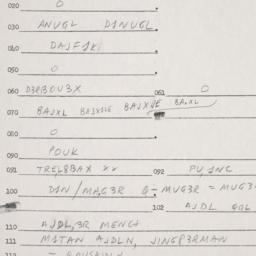 020 0
030 ANUGL D1NUGL
040 DAJFJK
050 0
060 D3RBOU3X 061 0
070 BAJXL BAJXSLE BAJXLE BAJXL
080 0
090 POUK
091 TREL8BAX xx 092 PU,1NC
100 D1N/MA,G3R MUG3R = MUG3
102 AJDL
110 AJDL,3R MENG4
111 M1TAN AJDLN, JINGP3RMAN
112